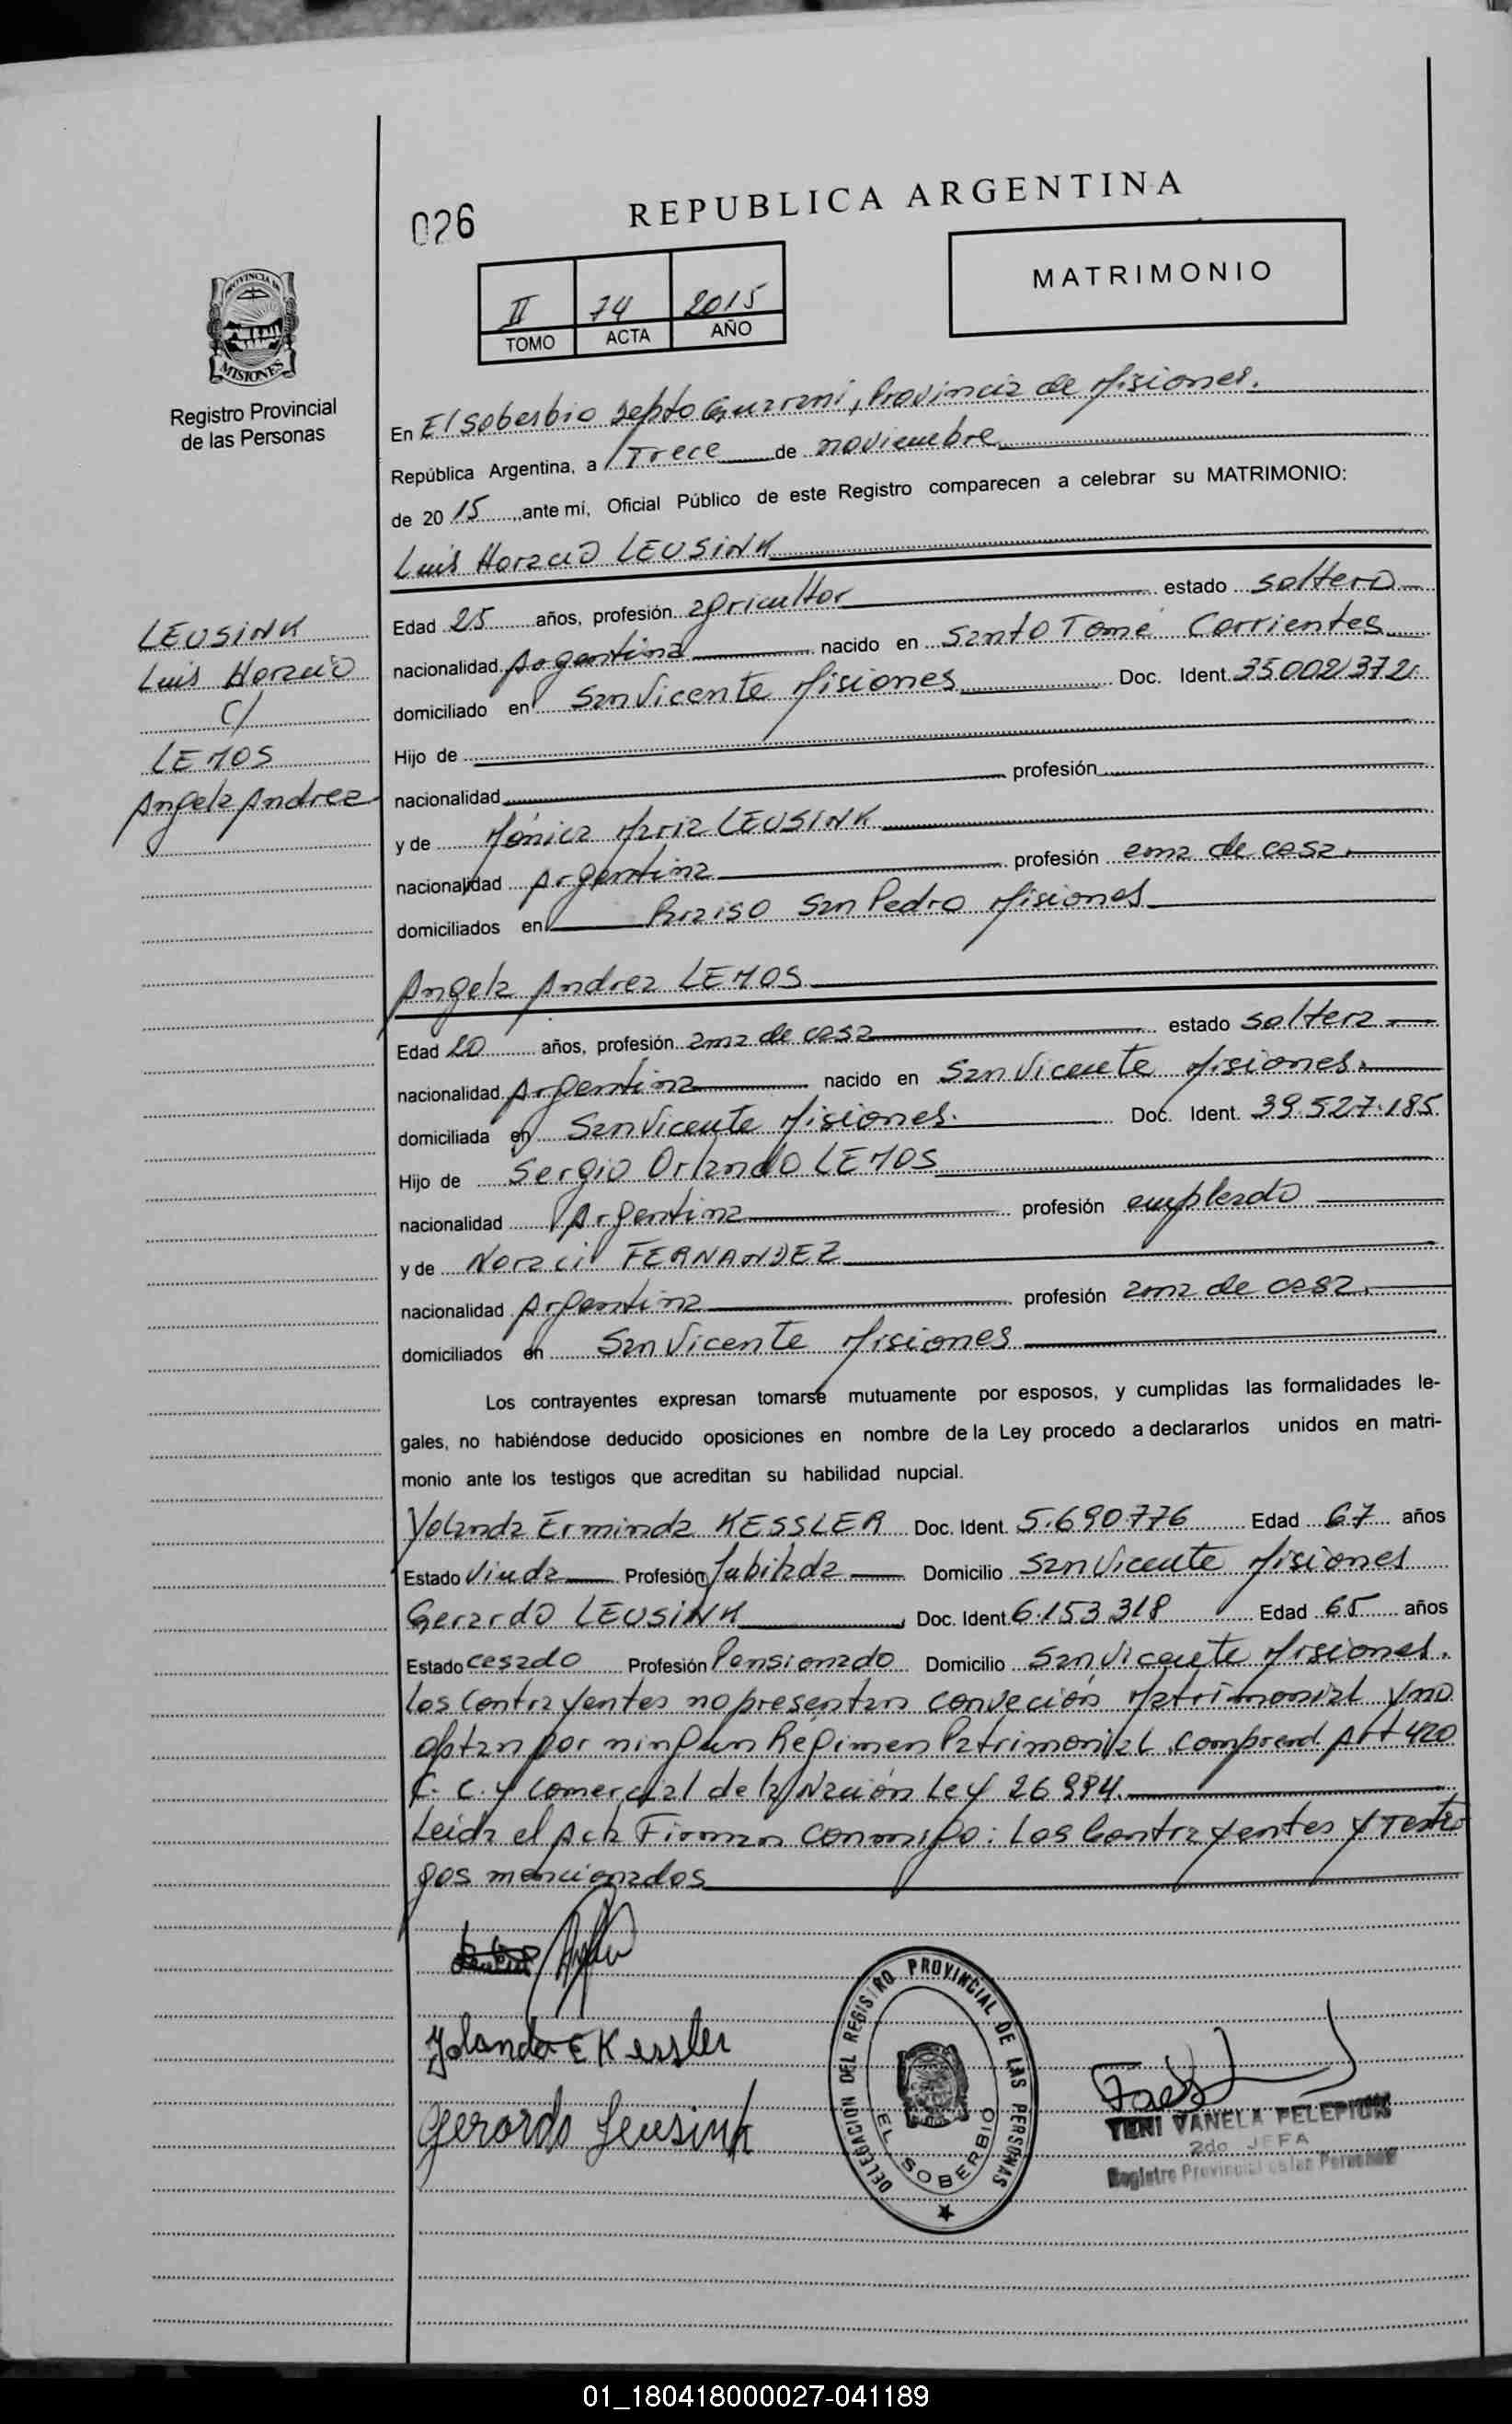 026
REPUBLICA ARGENTINA
II 74 2015
TOMO ACTA AÑO
MATRIMONIO
PROVINCIA DE
MISIONES
Registro Provincial
de las Personas
LEUSINK
Luis Horacio
C/
LEMOS
Angela Andrea
En El Soberbio Depto Guarani, Provincia de Misiones.
República Argentina, a Trece de noviembre
de 2015, ante mi, Oficial Público de este Registro comparecen a celebrar su MATRIMONIO:
Luis Horacio LEUSINK
Edad 25 años, profesión agricultor estado soltero
nacionalidad Argentina nacido en Santo Tomé Corrientes
domiciliado en San Vicente Misiones Doc. Ident. 35.002.372
Hijo de
nacionalidad profesión
y de Mónica Maria LEUSINK
nacionalidad Argentina profesión ama de casa.
domiciliados en Paraiso San Pedro Misiones
Angela Andrea LEMOS
Edad 20 años, profesión ama de casa estado soltera
nacionalidad Argentina nacido en San Vicente Misiones.
domiciliada en San Vicente Misiones. Doc. Ident. 39.527.185
Hijo de Sergio Orlando LEMOS
nacionalidad Argentina profesión empleado
y de Noraci FERNANDEZ
nacionalidad Argentina profesión ama de casa.
domiciliados en San Vicente Misiones
Los contrayentes expresan tomarse mutuamente por esposos, y cumplidas las formalidades le-
gales, no habiéndose deducido oposiciones en nombre de la Ley procedo a declararlos unidos en matri-
monio ante los testigos que acreditan su habilidad nupcial.
Yolanda Erminda KESSLER Doc. Ident. 5.690.776 Edad 67 años
Estado Viuda Profesión Jubilada Domicilio San Vicente Misiones
Gerardo LEUSINK Doc. Ident 6.153.318 Edad 65 años
Estado casado Profesión Pensionado Domicilio San Vicente Misiones.
Los Contrayentes no presentan conveción Matrimonial y no
optan por ningun Régimen Patrimonial comprend. Art 420
C. C. y Comercial de la Nación Ley 26.994.
Leida el Acta Firman conmigo: Los Contrayentes y Testi
gos mencionados
Yolanda E Kessler
Gerardo Leusink
DELEGACIÓN DEL REGISTRO PROVINCIAL DE LAS PERSONAS
EL SOBERBIO
2do JEFA
Registro Provincial de las Personas
01_180418000027-041189